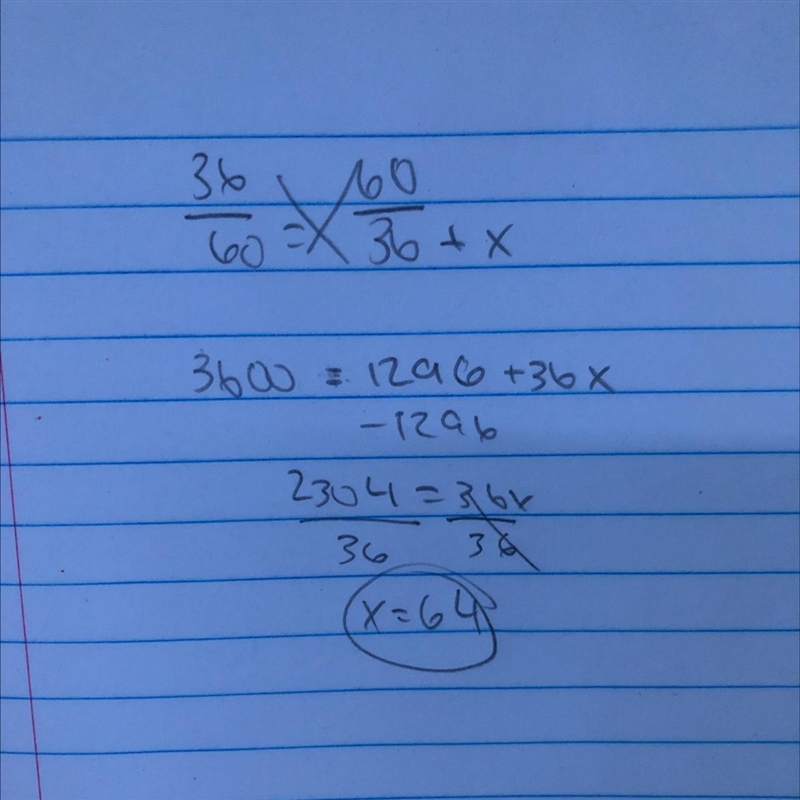 36/60 = 60/36 + x
3600 = 1296 + 36x
-1296
2304/36 = 36x/36
x = 64